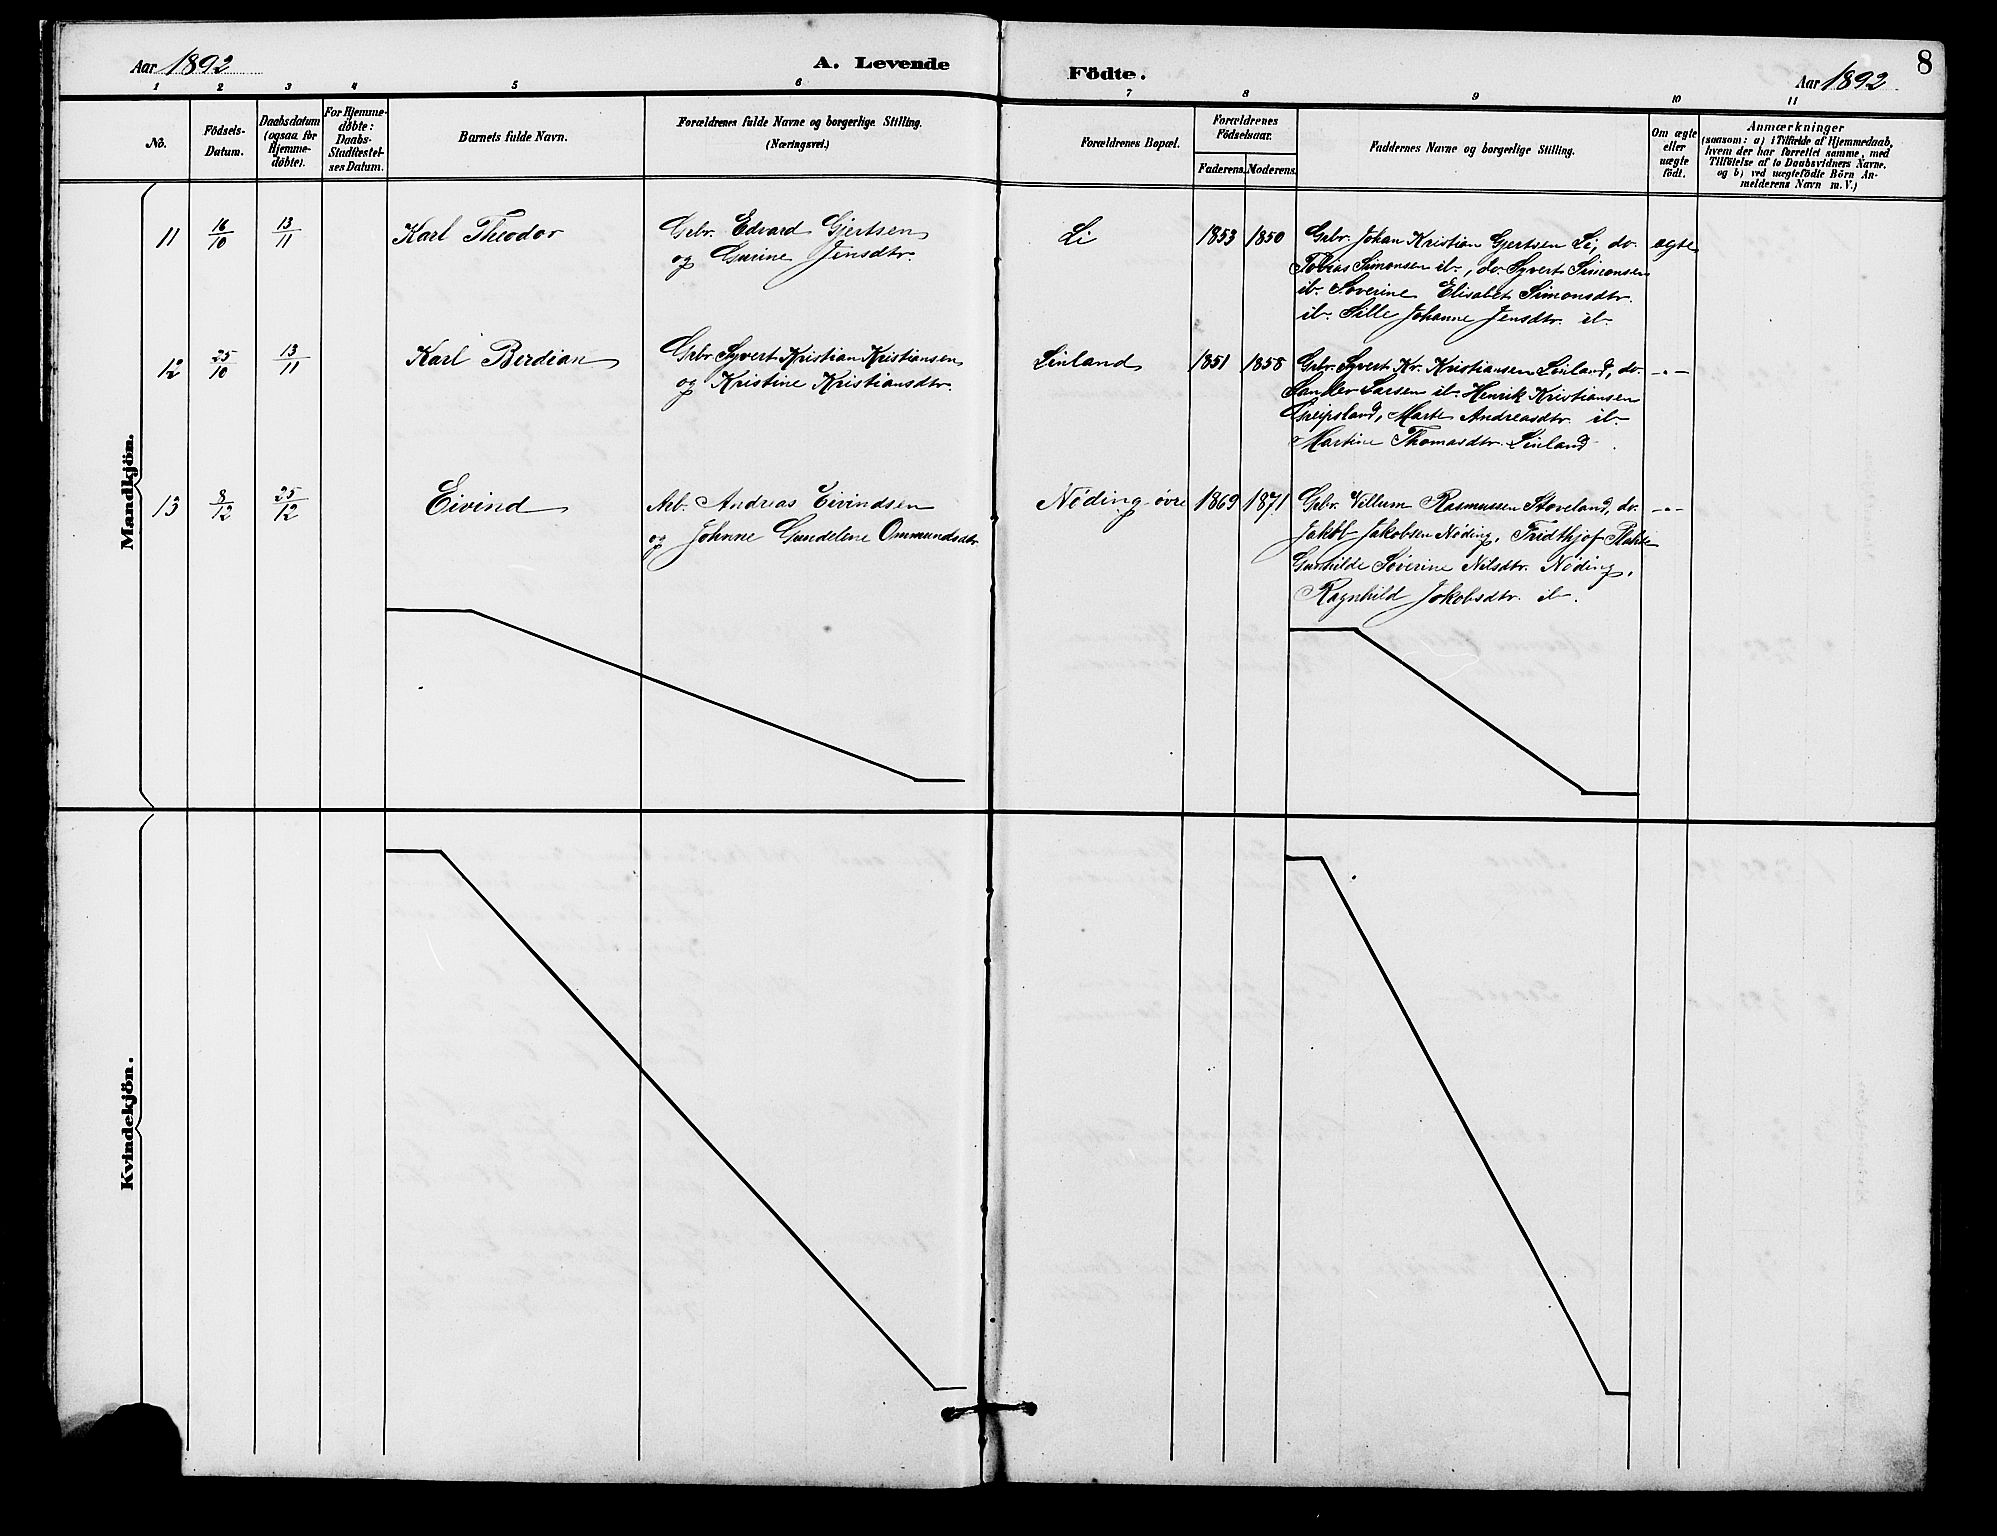 Aar 1892
A. Levende
Födte.
Aar 1892
8
1 2 3 4 5 6 7 8 9 10 11
No.
Födsels-
Datum.
Daabsdatum
(ogsaa for
Hjemme-
döbte).
For Hjemme-
döbte:
Daabs-
Stadfæstel-
ses Datum.
Barnets fulde Navn.
Forældrenes fulde Navne og borgerlige Stilling.
(Næringsvei.)
Forældrenes Bopæl.
Forældrenes
Födselsaar.
Faderens. Moderens.
Faddernes Navne og borgerlige Stilling.
Om ægte
eller
uægte
født.
Anmærkninger
(saasom: a) i Tilfælde af Hjemmedaab,
hvem der har forrettet samme, med
Tilföielse af to Daabsvidners Navne.
og b) ved uægtefödte Börn An-
melderens Navn m. V.)
Mandkjön.
11 16/10 13/11 Karl Theodor Grbr. Edvard Gjertsen
og Gurine Jensdtr.
Li 1853 1850
Grbr. Johan Kristian Gjertsen Li, do.
Tobias Simonsen ib., do. Syvert Simonsen
ib. Soverine Elisabet Simonsdtr.
ib. Sille Johanne Jensdtr. ib.
ægte
12 25/10 13/11 Karl Berdian Grbr. Syvert Kristian Kristiansen
og Kristine Kristiansdtr.
Linland 1851 1858
Grbr. Syvert Kr. Kristiansen Linland, do.
Sander Larsen ib. Henrik Kristiansen
Greipsland, Marte Andreasdtr. ib.
Martine Thomasdtr. Linland.
-"-
13 8/12 25/12 Eivind Arb. Andreas Eivindsen
og Johnne Gundelene Ommundsdtr.
Nöding øvre 1869 1871
Grbr. Villum Rasmussen Stoveland, do.
Jakob Jakobsen Nöding, Fridthjof
Gunhilde Söverine Nilsdtr. Nöding,
Ragnhild Jakobsdtr. ib.
-"-
Kvindekjön.